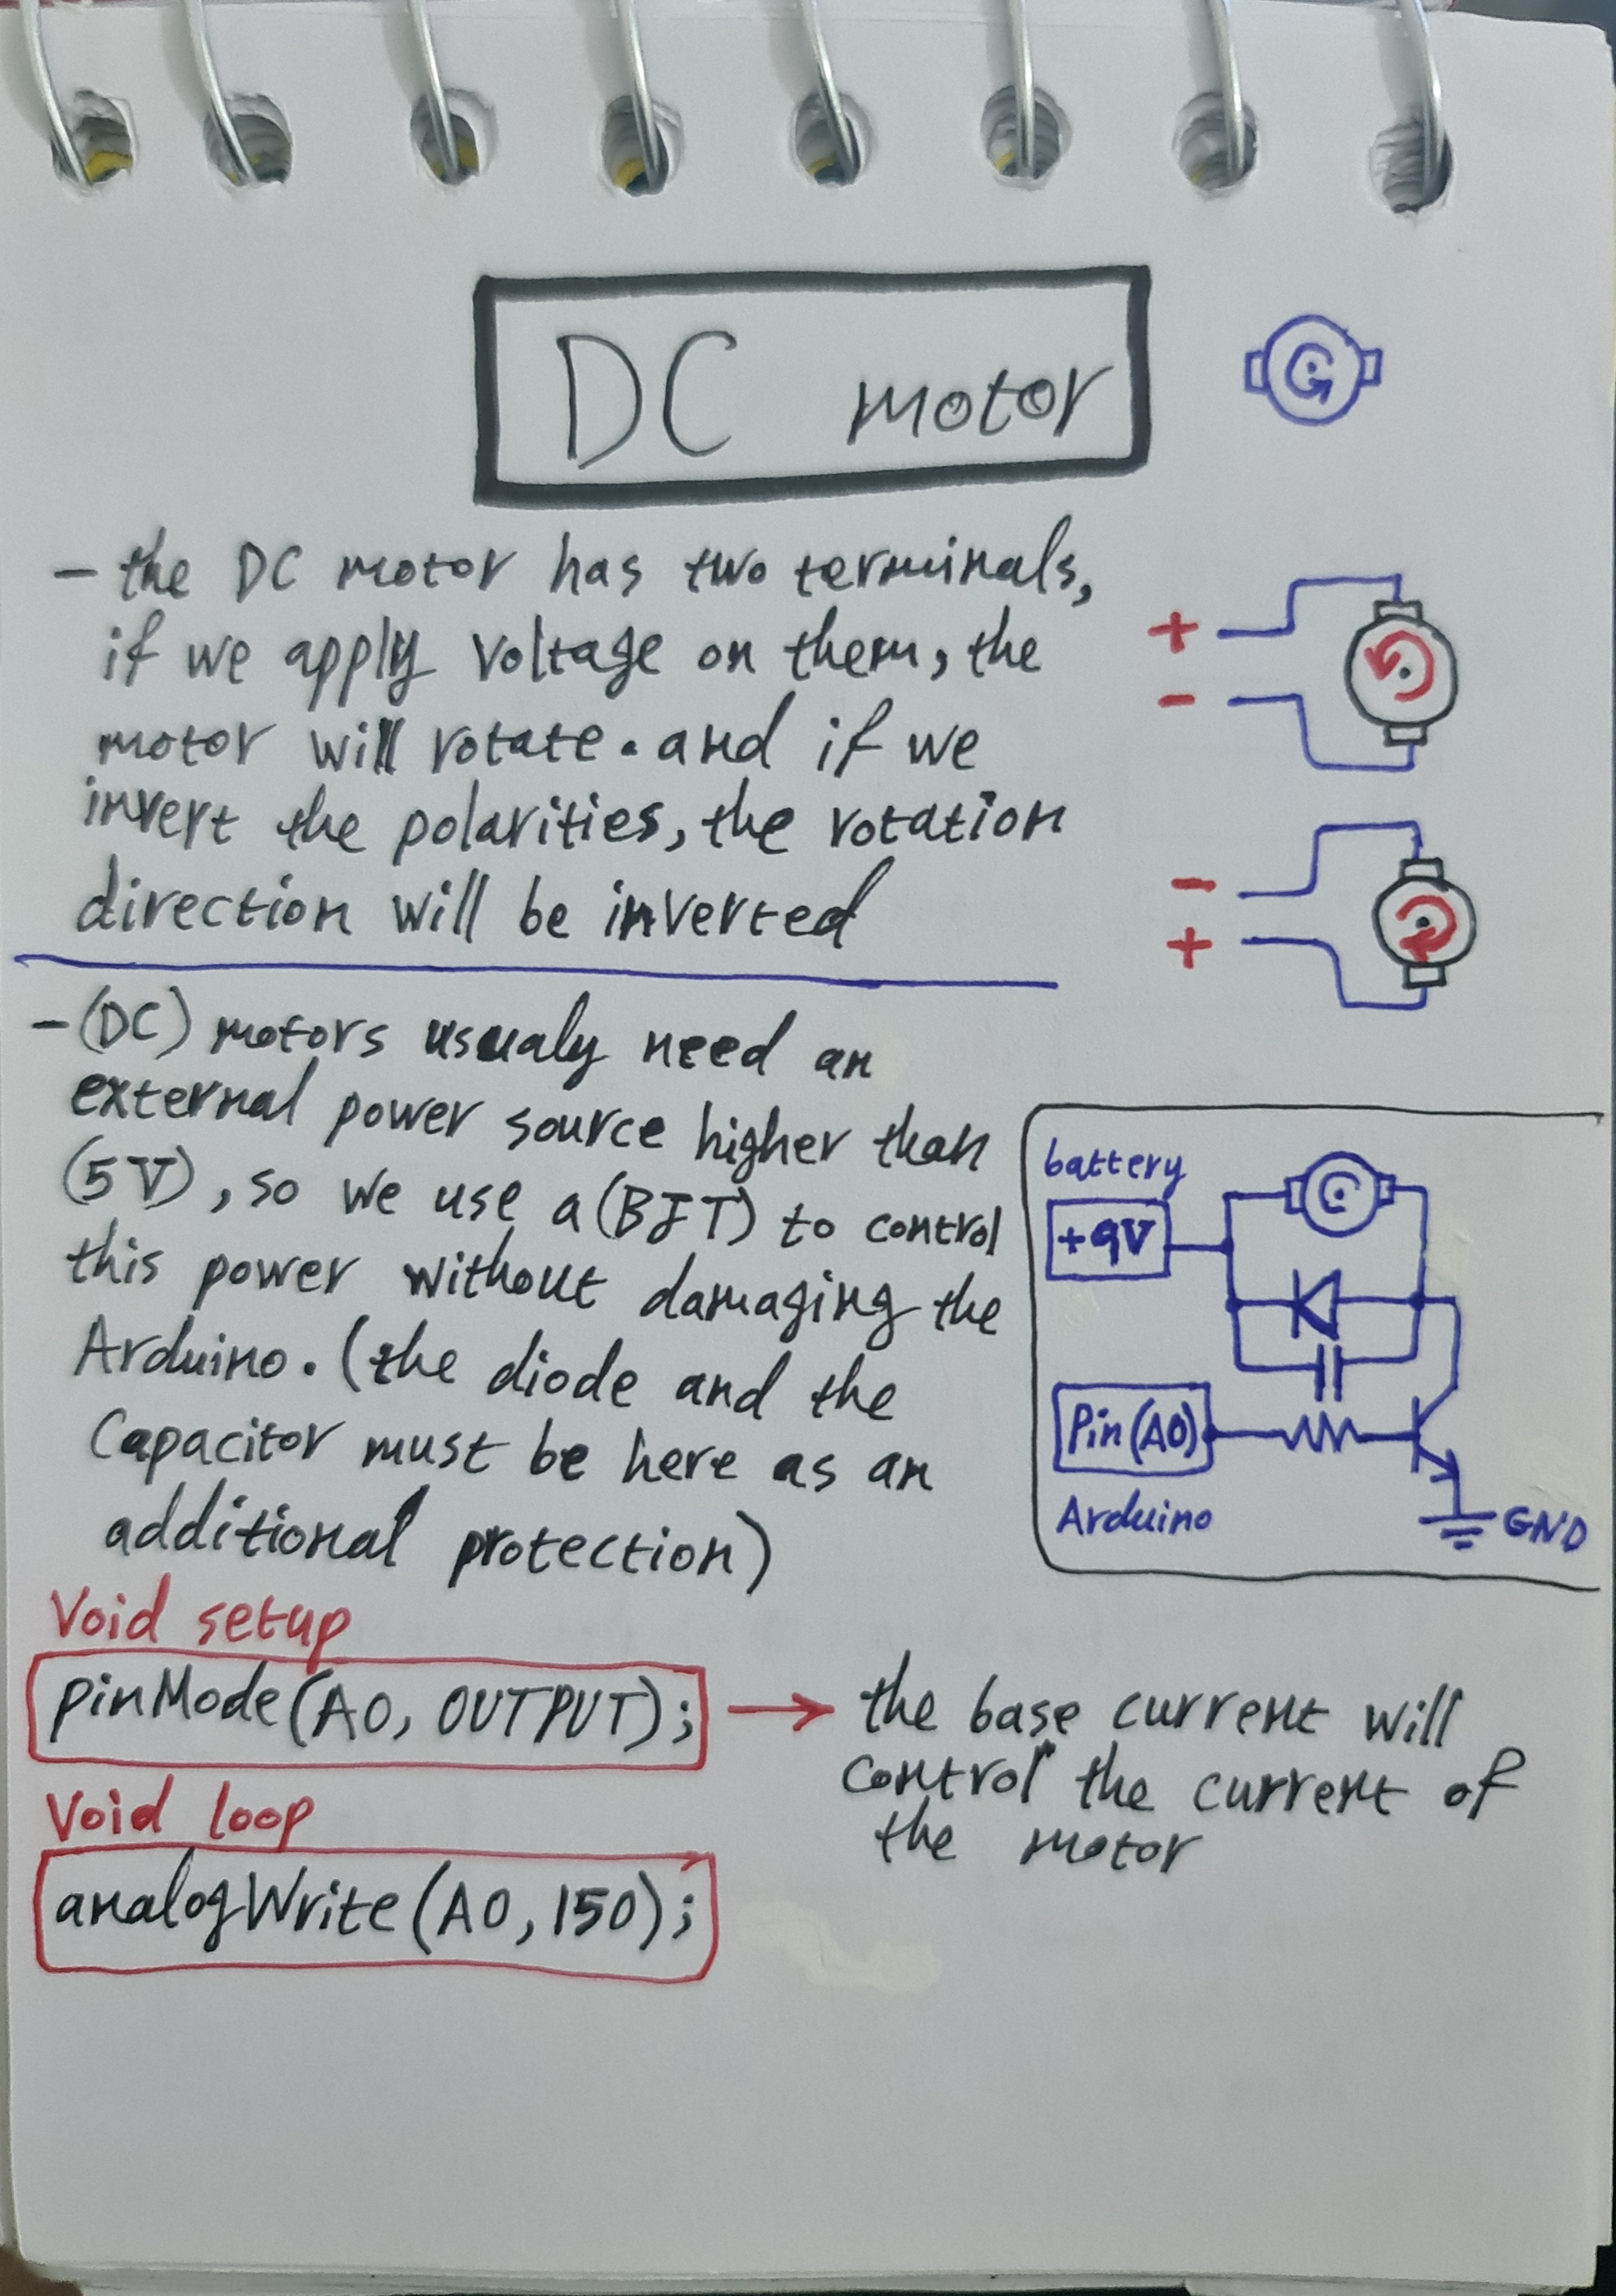 DC motor
- the DC motor has two terminals,
if we apply voltage on them, the
motor will rotate. and if we
invert the polarities, the rotation
direction will be inverted
+
-
-
+
- (DC) motors usualy need an
external power source higher than
(5V), so we use a (BJT) to control
this power without damaging the
Arduino. (the diode and the
Capacitor must be here as an
additional protection)
battery
+9V
Pin(A0)
Arduino
GND
Void setup
pinMode(A0, OUTPUT);
the base current will
control the current of
the motor
Void loop
analogWrite(A0, 150);